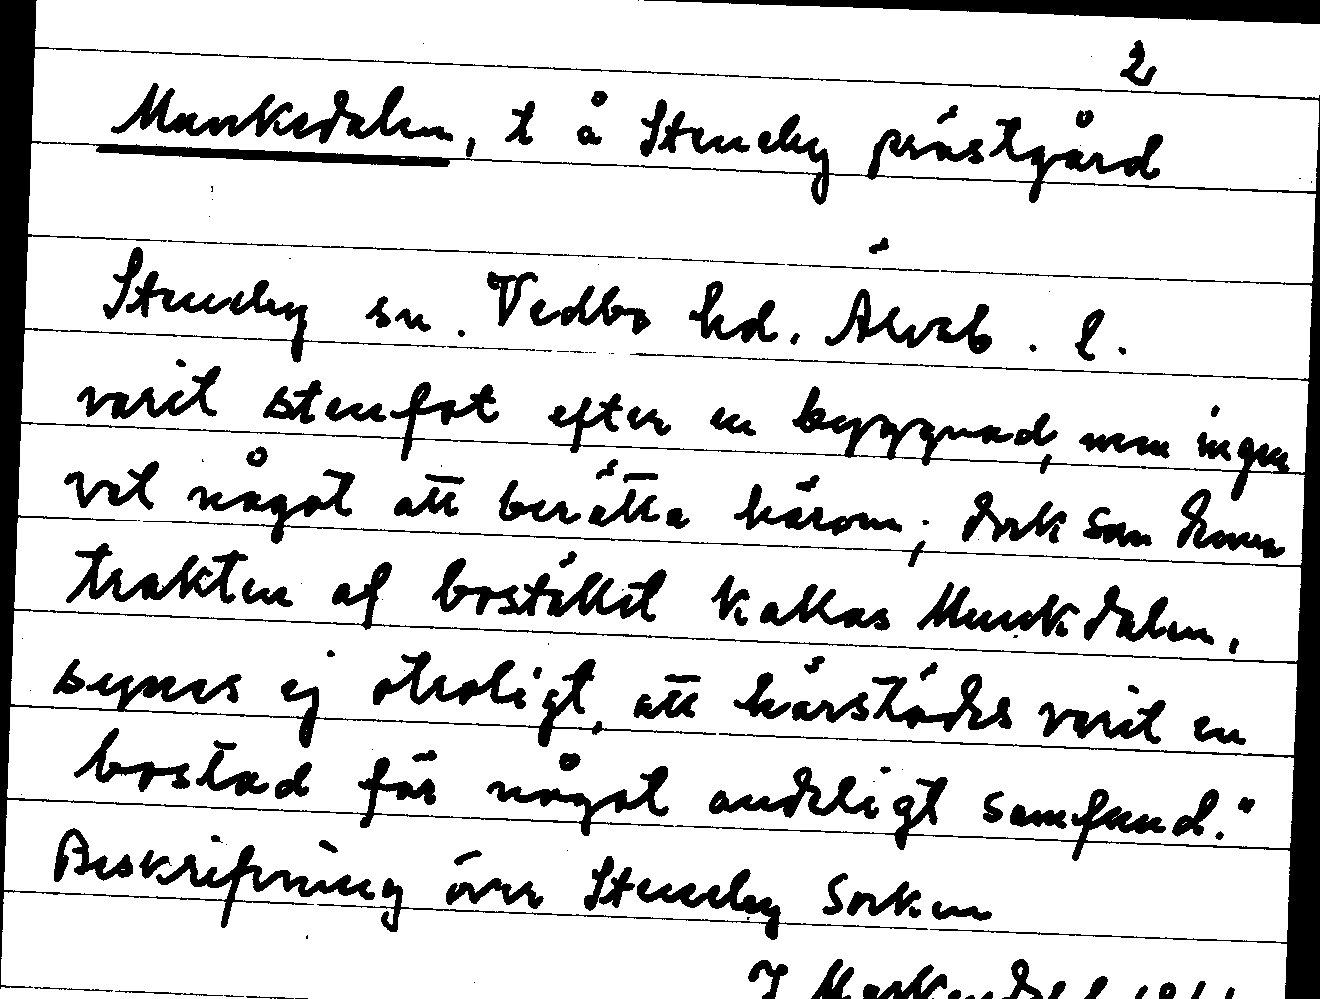 2
Munkedalen, t å Steneby prästgård
Steneby sn. Vedbo hd. Älvsb. l.
varit stenfot efter en byggnad, men ingen
vet något att berätta härom; dock som denna
trakten af bostället kallas Munkdalen,
synes ej otroligt, att härstädes varit en
bostad för något andeligt samfund."
Beskrifvning över Steneby Socken